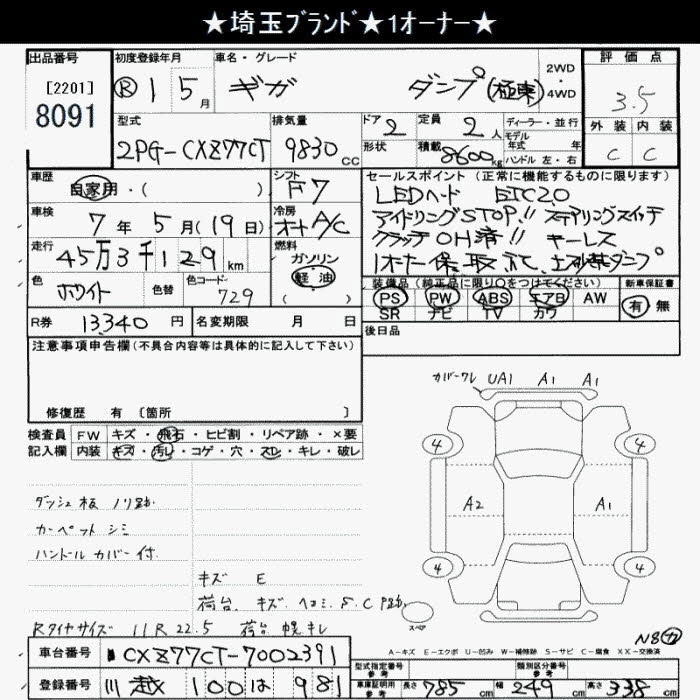 ★埼玉ブランド★1オーナー★
出品番号
[2201]
8091
初度登録年月
R 1 5月
車名・グレード
ギガ ダンプ (極東)
2WD
4WD
評価点
3.5
外装 内装
C C
型式
2PG-CXZ77CT
排気量
9830 cc
ドア 2
形状
定員 2人
積載 8600kg
ディーラー・並行
モデル
年式 年
ハンドル 左・右
車歴
自家用・( )
シフト F7
車検
7年5月(19日)
冷房
オートA/C
走行
45万3千129km
燃料
ガソリン
軽油
( )
色
ホワイト
色替
色コード
729
R券 13,340円
名変期限 月 日
セールスポイント (正常に機能するものに限ります)
LEDヘッド ETC2.0
アイドリングSTOP!! ステアリングスイッチ
クラッチOH済!! キーレス
1オーナー 保、取、記、土砂禁ダンプ
装備品(純正品に限り○をつけてください)
PS PW ABS エアB AW
SR ナビ TV カワ
新車保証書
有・無
後日品
注意事項申告欄(不具合内容等は具体的に記入して下さい)
修復歴 有 〔箇所 〕
検査員
記入欄
FW キズ・飛石・ヒビ割・リペア跡・×要
内装 キズ・汚レ・コゲ・穴・スレ・キレ・破レ
ダッシュ板 ノリ跡
カーペット シミ
ハンドルカバー付
キズ E
荷台 キズ、ヘコミ、S、C、P跡
Rタイヤサイズ 11R22.5 荷台幌キレ
カバーワレ UA1 A1 A1
4 4
A2 A1
4 4
スペア
N8
A-キズ E-エクボ U-凹み W-補修跡 S-サビ C-腐食 XX-交換済
車台番号 CXZ77CT-7002391
登録番号 川越 100 は 981
型式指定番号
参考
類別区分番号
参考
車庫証明用
参考
長さ 785cm 幅 249cm 高さ 338cm